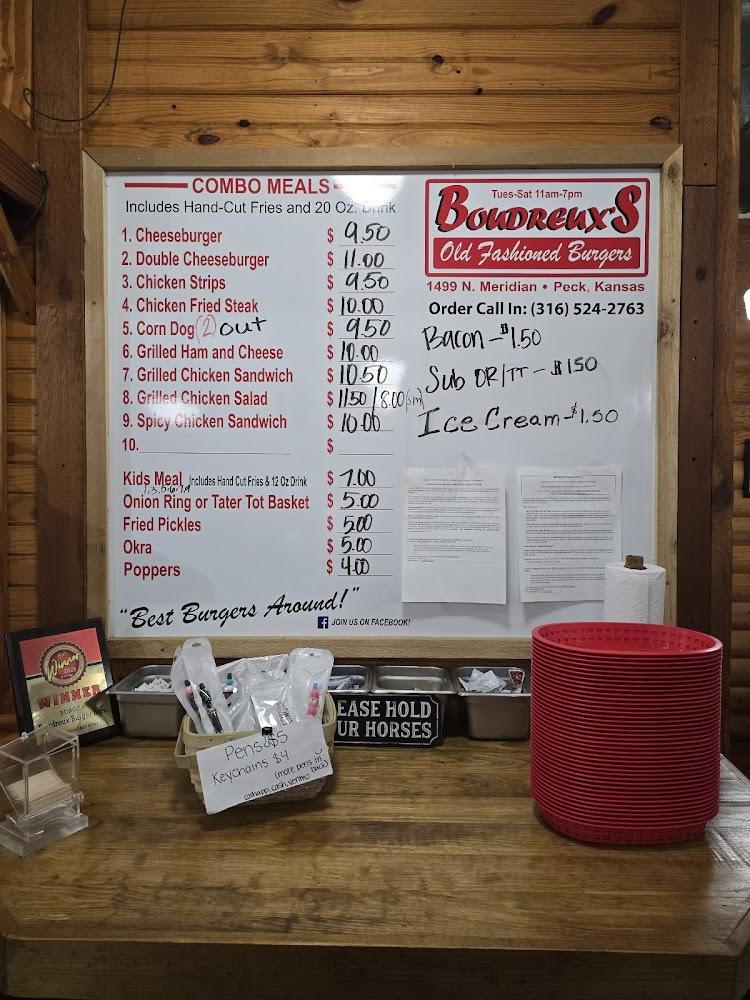 COMBO MEALS
Includes Hand-Cut Fries and 20 Oz. Drink
1. Cheeseburger $ 9.50
2. Double Cheeseburger $ 11.00
3. Chicken Strips $ 9.50
4. Chicken Fried Steak $ 10.00
5. Corn Dog (2) out $ 9.50
6. Grilled Ham and Cheese $ 10.00
7. Grilled Chicken Sandwich $ 10.50
8. Grilled Chicken Salad $ 11.50 / 8.00 (sm)
9. Spicy Chicken Sandwich $ 10.00
10. $
Kids Meal Includes Hand Cut Fries & 12 Oz Drink $ 7.00
Onion Ring or Tater Tot Basket $ 5.00
Fried Pickles $ 5.00
Okra $ 5.00
Poppers $ 4.00
"Best Burgers Around!"
JOIN US ON FACEBOOK!
Tues-Sat 11am-7pm
BOUDREUX'S
Old Fashioned Burgers
1499 N. Meridian • Peck, Kansas
Order Call In: (316) 524-2763
Bacon - $1.50
Sub OR/TT - $1.50
Ice Cream - $1.50
Winner
WINNER
EASE HOLD
UR HORSES
Pens $5
Keychains $4
(more pens in back)
cashapp, cash, venmo